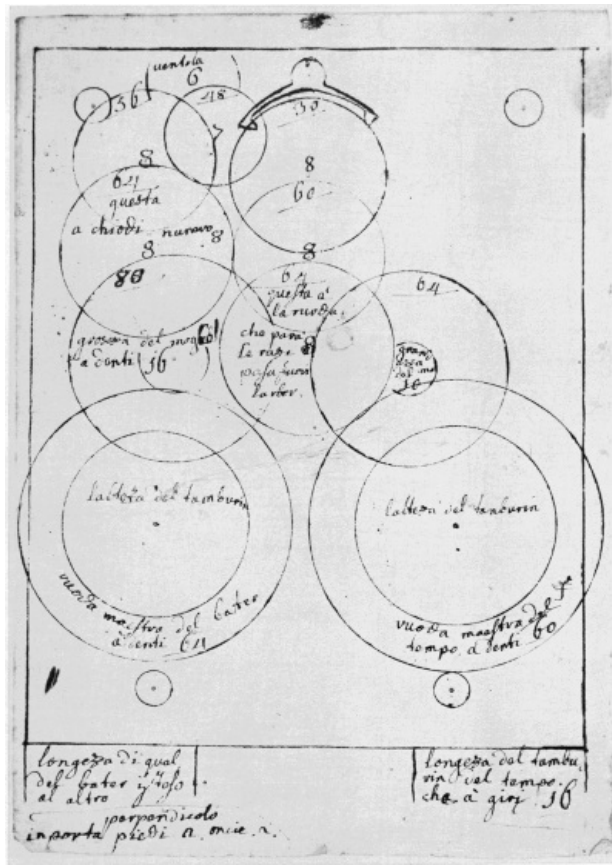 ventola
6
36
48
7
30
8
8
60
64
questa
a chiodi nuravo 8
8
8
64
questa a
la ruvda
che para
le
pasa fuori
larbor
8
80
64
groseza del
a denti 16
gran
deza
del
16
lalteza del tamburin
lalteza del tamburin
vuoda maestra del bater
a denti 64
vuoda maestra del
tempo a denti 60
longeza di qual
del bater
al altro
perpendicolo
inporta piedi n. oncie 2
longeza del tambu
rin del tempo
che a giri 16